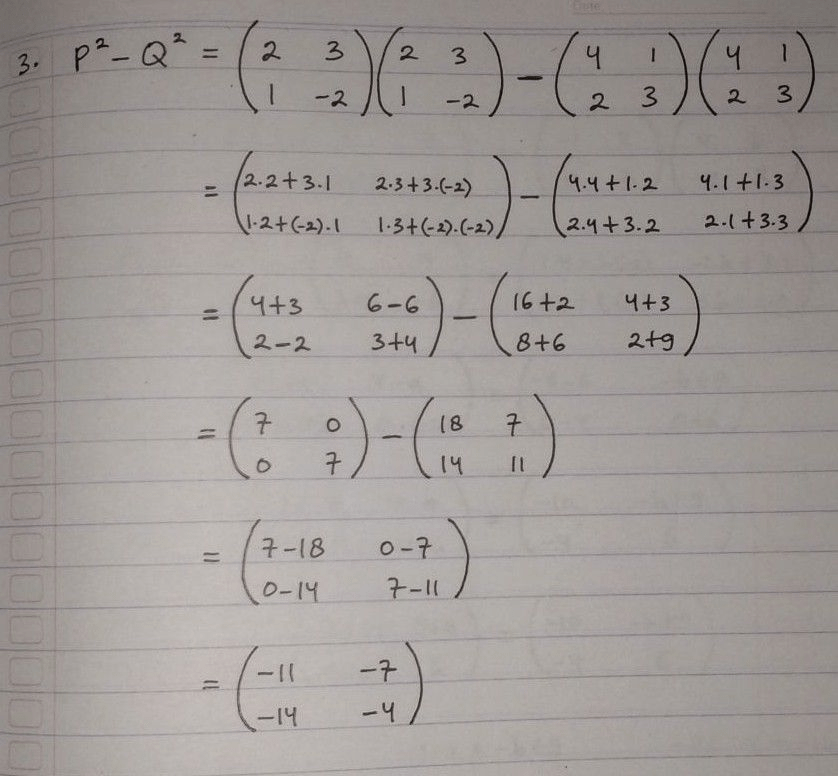 Date
3. P² - Q² = (2 3 / 1 -2)(2 3 / 1 -2) - (4 1 / 2 3)(4 1 / 2 3)
= (2.2+3.1 2.3+3.(-2) / 1.2+(-2).1 1.3+(-2).(-2)) - (4.4+1.2 4.1+1.3 / 2.4+3.2 2.1+3.3)
= (4+3 6-6 / 2-2 3+4) - (16+2 4+3 / 8+6 2+9)
= (7 0 / 0 7) - (18 7 / 14 11)
= (7-18 0-7 / 0-14 7-11)
= (-11 -7 / -14 -4)